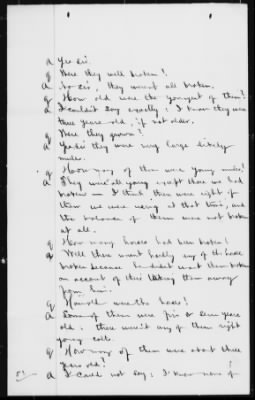 A Yes sir.
Q Were they well broken?
A No sir, they weren't all broken.
Q How old were the youngest of them?
A I couldn't say exactly; I know they were
three years old, if not older.
Q Were they grown?
A Yes sir they were very large likely
mules.
Q How many of them were young mules?
A They were all young except those we had
broken and I think there were eight of
them we were using at that time, and
the balance of them were not broken
at all.
Q How many horses had been broken?
A Well there weren't hardly any of the horses
broke because he didn't want them broken
on account of their taking them away
from him.
Q How old were the horses?
A Some of them were five or seven years
old; there weren't any of them right
young colts.
Q How many of them were about three
years old?
A I could not say; I know none of